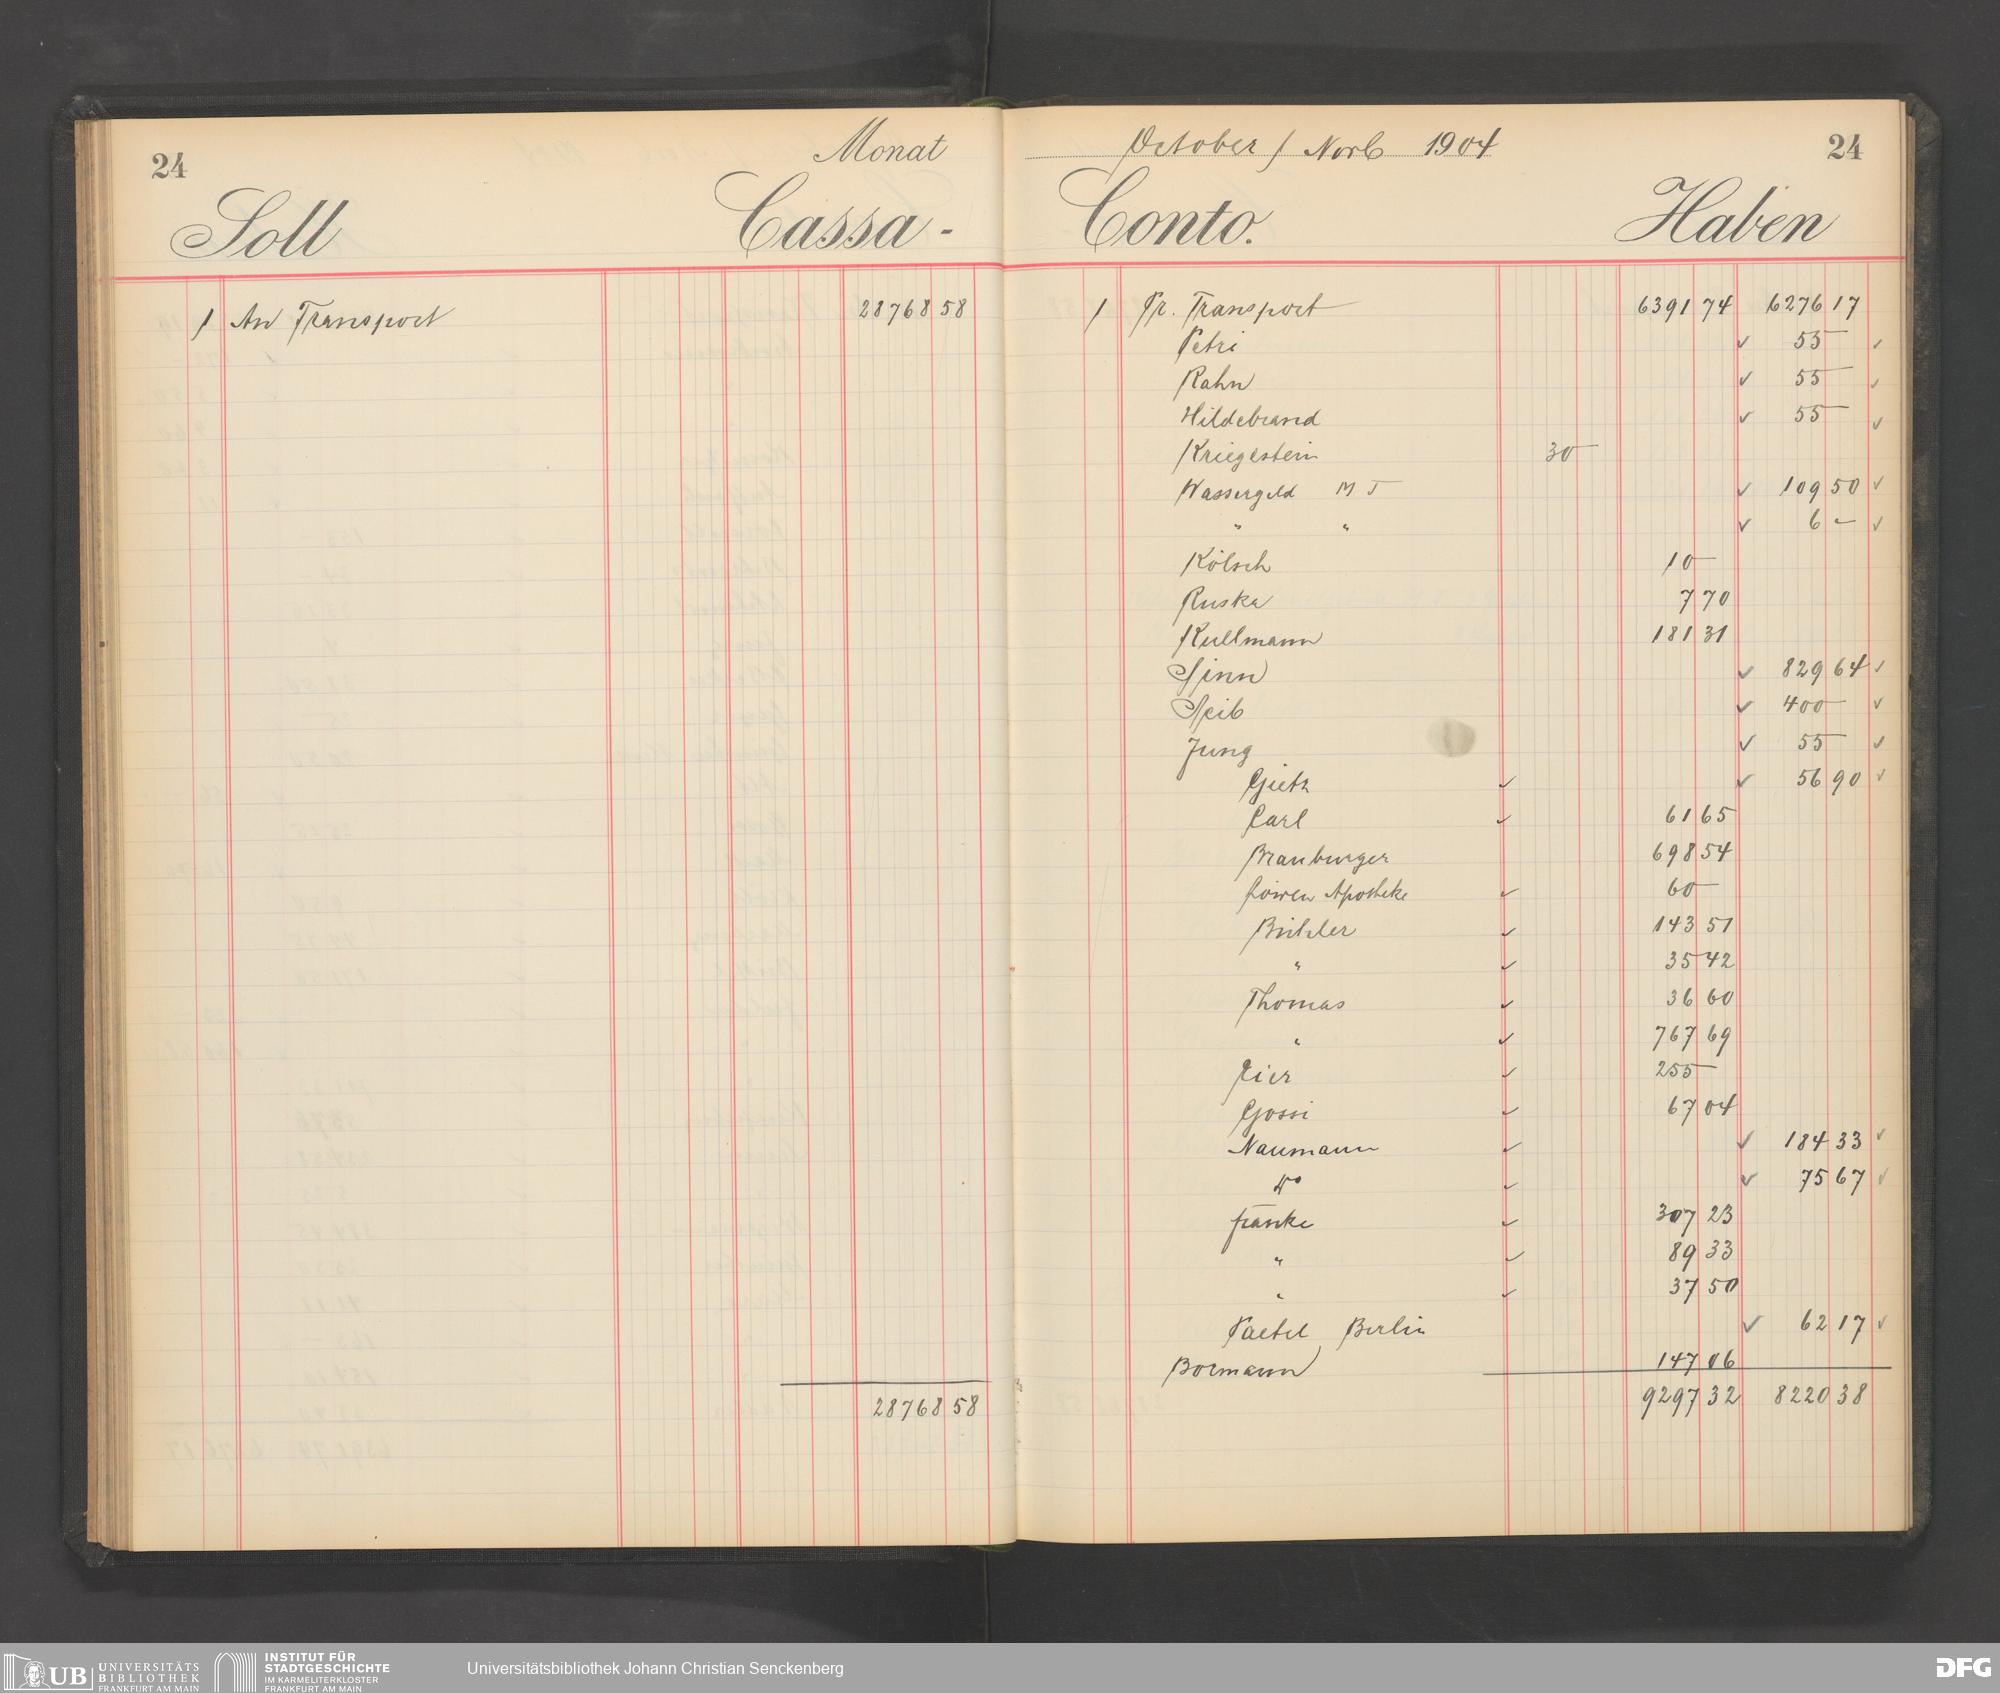 24
Monat
Soll
Cassa -
1 An Transport 28768 58
28768 58
October / Novb 1904
24
Conto.
Haben
1 Pr. Transport 6391 74 6276 17
Petri ✓ 55 — ✓
Rahn ✓ 55 — ✓
Hildebrand ✓ 55 — ✓
Kriegestein 30 —
Wassergeld M T ✓ 109 50 ✓
" " ✓ 6 — ✓
Kölsch 10 —
Ruska 7 70
Kullmann 181 31
Sinn ✓ 829 64 ✓
Seib ✓ 400 — ✓
Jung ✓ 55 — ✓
Gietz ✓ ✓ 56 90 ✓
Carl ✓ 61 65
Brauburger 698 54
Löwen Apotheke ✓ 60 —
Bühler ✓ 143 51
" ✓ 35 42
Thomas ✓ 36 60
" ✓ 767 69
✓ 255 —
Gossi ✓ 67 04
Naumann ✓ ✓ 184 33 ✓
do ✓ ✓ 75 67 ✓
Franke ✓ 307 23
" ✓ 89 33
" ✓ 37 50
Paetel Berlin ✓ 62 17 ✓
Bormann 147 06
9297 32 8220 38
UB UNIVERSITÄTS
BIBLIOTHEK
FRANKFURT AM MAIN
INSTITUT FÜR
STADTGESCHICHTE
IM KARMELITERKLOSTER
FRANKFURT AM MAIN
Universitätsbibliothek Johann Christian Senckenberg
DFG